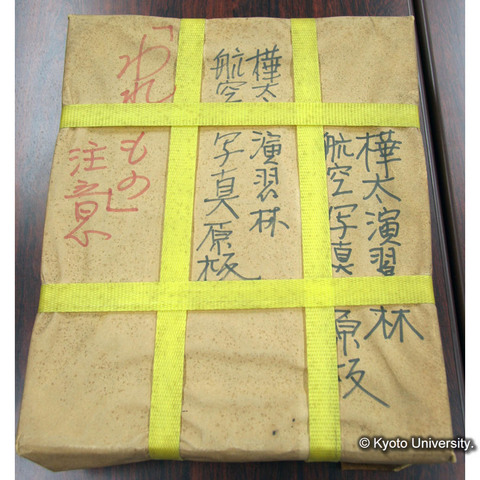 樺太演習林
航空写真原板
樺太演習林
航空写真原板
「われもの」
注意
© Kyoto University.